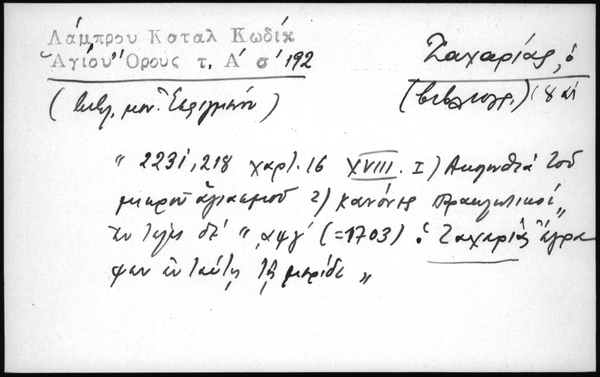 Λάμπρου Καταλ Κωδίκ
Ἁγίου Ὄρους τ, Α' σ' 192
Ζαχαρίας, ὁ
(βιβλιογρ.) 18 αἰ
(βιβλ. μον. Ἐσφιγμένου)
" 2231, 218 χαρτ. 16 XVIII. 1) Ἀκολουθία τοῦ
μικροῦ ἁγιασμοῦ 2) κανόνες παρακλητικοί,
ἐν τέλει δέ " ,αψγ' (=1703) ὁ Ζαχαρίας ἔγρα
ψαν ἐν ταύτῃ τῇ μερίδι "